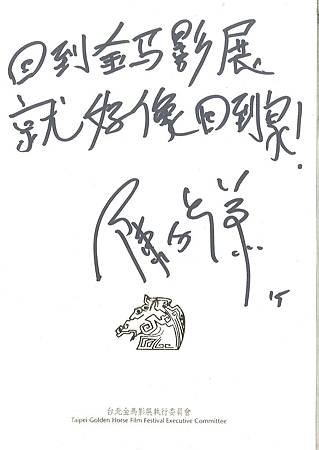 回到金馬影展
就好像回到家!
台北金馬影展執行委員會
Taipei Golden Horse Film Festival Executive Committee